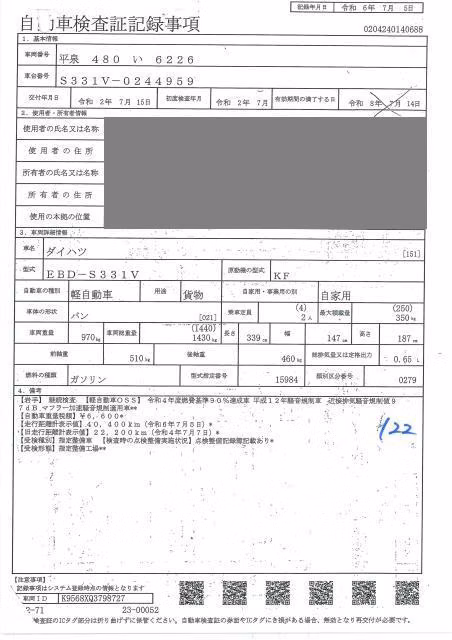 自動車検査証記録事項
記録年月日 令和 6年 7月 5日
0204240140688
1．基本情報
車両番号 平泉 480 い 6226
車台番号 S331V-0244959
交付年月日 令和 2年 7月 15日 初度検査年月 令和 2年 7月 有効期間の満了する日 令和 8年 7月 14日
2．使用者・所有者情報
使用者の氏名又は名称
使用者の住所
所有者の氏名又は名称
所有者の住所
使用の本拠の位置
3．車両詳細情報
車名 ダイハツ [151]
型式 EBD-S331V 原動機の型式 KF
自動車の種別 軽自動車 用途 貨物 自家用・事業用の別 自家用
車体の形状 バン [021] 乗車定員 (4) 2人 最大積載量 (250) 350kg
車両重量 970kg 車両総重量 (1440) 1430kg 長さ 339cm 幅 147cm 高さ 187cm
前軸重 510kg 後軸重 460kg 総排気量又は定格出力 0.65L
燃料の種類 ガソリン 型式指定番号 15984 類別区分番号 0279
4．備考
【岩手】 継続検査 【軽自動車OSS】 令和4年度燃費基準90％達成車 平成12年騒音規制車 近接排気騒音規制値9
7dB，マフラー加速騒音規制適用車**
【自動車重量税額】¥6,600*
【走行距離計表示値】40,400km（令和6年7月5日）*
【旧走行距離計表示値】22,200km（令和4年7月7日）*
【受検種別】指定整備車 【検査時の点検整備実施状況】点検整備記録簿記載あり*
【受検形態】指定整備工場**
122
【注意事項】
記録事項はシステム登録時点の情報となります
車両ID K9568XQ3798727
2-71 23-00052
検査証のICタグ部分は折り曲げずに保管ください。自動車検査証の券面やICタグにき損がある場合、無効となり再交付が必要です。